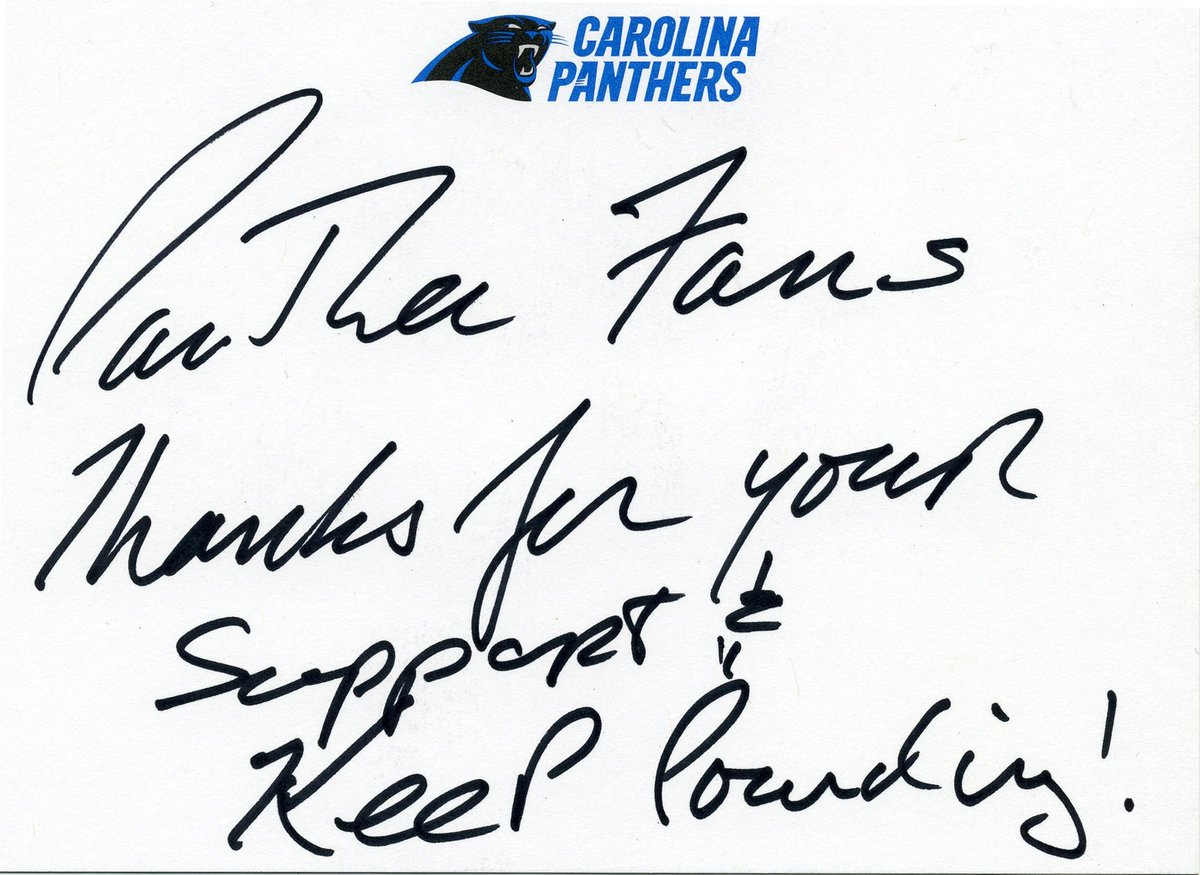 CAROLINA
PANTHERS
Panther Fans
Thanks for your
Support &
Keep Pounding!